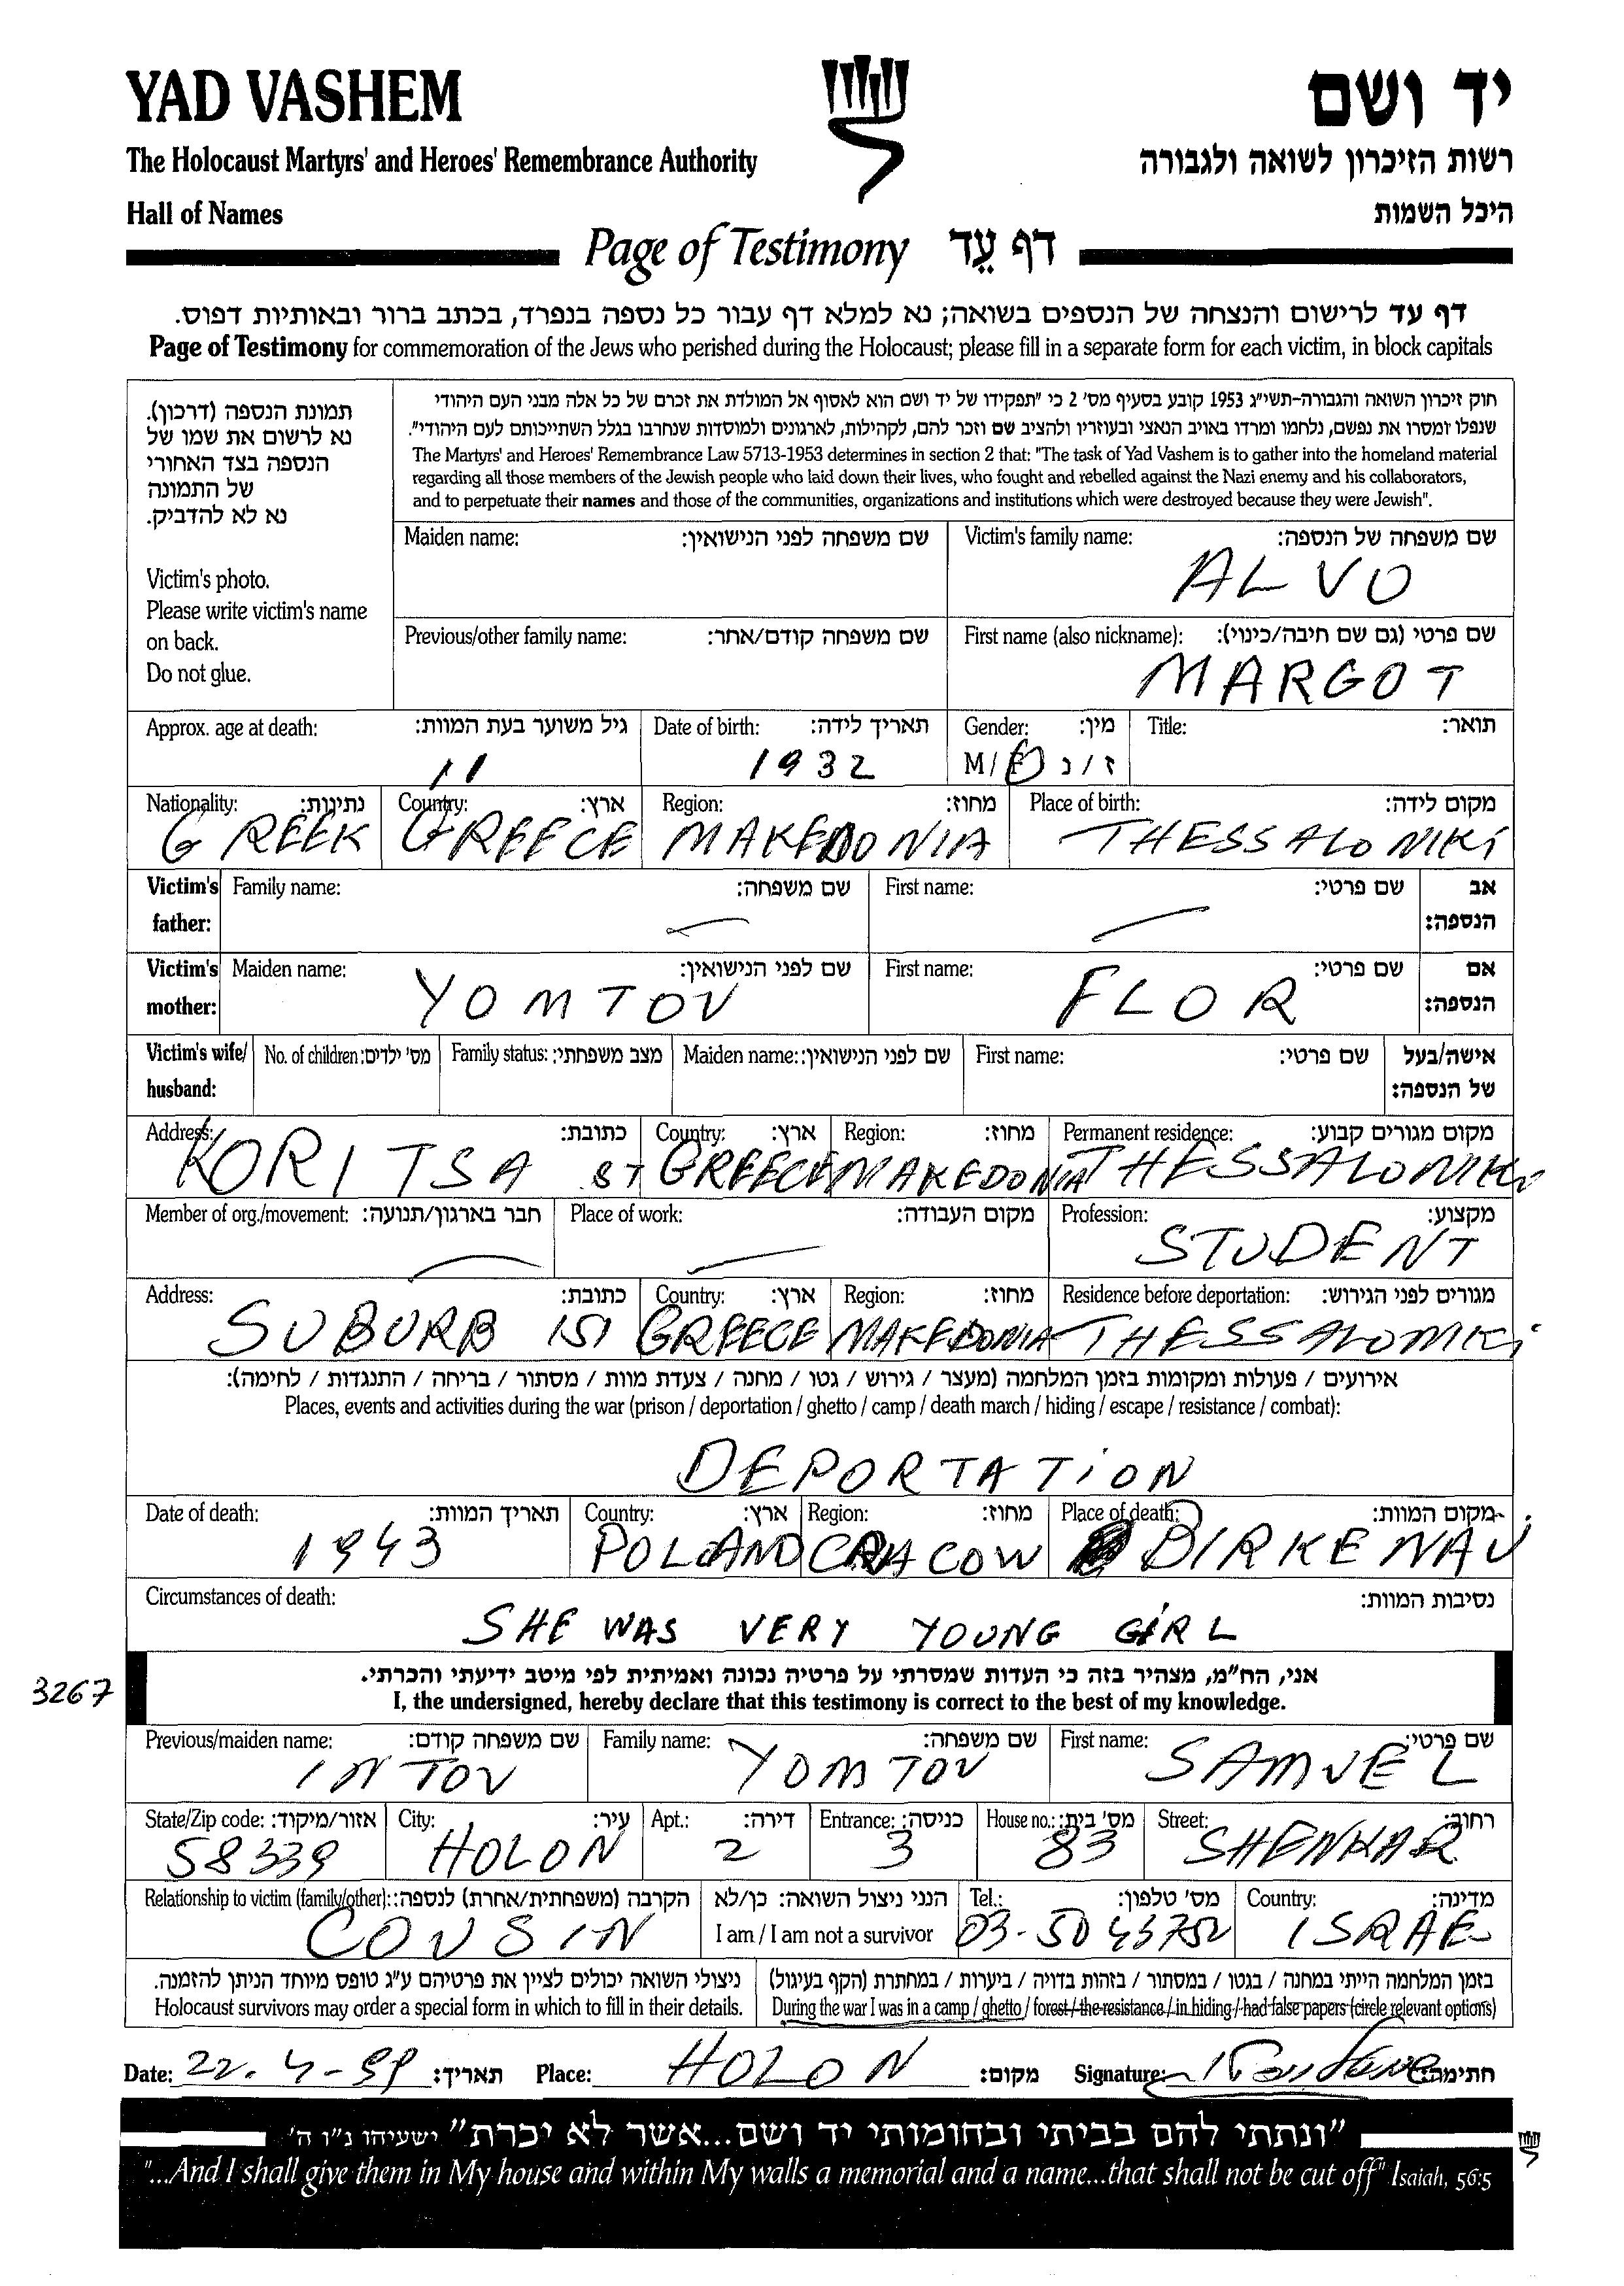 YAD VASHEM
יד ושם
The Holocaust Martyrs' and Heroes' Remembrance Authority
רשות הזיכרון לשואה ולגבורה
Hall of Names
היכל השמות
Page of Testimony דף עֵד
דף עד לרישום והנצחה של הנספים בשואה; נא למלא דף עבור כל נספה בנפרד, בכתב ברור ובאותיות דפוס.
Page of Testimony for commemoration of the Jews who perished during the Holocaust; please fill in a separate form for each victim, in block capitals
תמונת הנספה (דרכון).
נא לרשום את שמו של
הנספה בצד האחורי
של התמונה
נא לא להדביק.
Victim's photo.
Please write victim's name
on back.
Do not glue.
חוק זיכרון השואה והגבורה-תשי"ג 1953 קובע בסעיף מס' 2 כי "תפקידו של יד ושם הוא לאסוף אל המולדת את זכרם של כל אלה מבני העם היהודי
שנפלו ומסרו את נפשם, נלחמו ומרדו באויב הנאצי ובעוזריו ולהציב שם וזכר להם, לקהילות, לארגונים ולמוסדות שנחרבו בגלל השתייכותם לעם היהודי".
The Martyrs' and Heroes' Remembrance Law 5713-1953 determines in section 2 that: "The task of Yad Vashem is to gather into the homeland material
regarding all those members of the Jewish people who laid down their lives, who fought and rebelled against the Nazi enemy and his collaborators,
and to perpetuate their names and those of the communities, organizations and institutions which were destroyed because they were Jewish".
Maiden name: שם משפחה לפני הנישואין: Victim's family name: שם משפחה של הנספה:
ALVO
Previous/other family name: שם משפחה קודם/אחר: First name (also nickname): שם פרטי (גם שם חיבה/כינוי):
MARGOT
Approx. age at death: גיל משוער בעת המוות: Date of birth: תאריך לידה: Gender: מין: Title: תואר:
11 1932 M/F ז/נ
Nationality: נתינות: Country: ארץ: Region: מחוז: Place of birth: מקום לידה:
GREEK GREECE MAKEDONIA THESSALONIKI
Victim's Family name: שם משפחה: First name: שם פרטי: אב
father: הנספה:
Victim's Maiden name: שם לפני הנישואין: First name: שם פרטי: אם
mother: YOMTOV FLOR הנספה:
Victim's wife/ No. of children: מס' ילדים: Family status: מצב משפחתי: Maiden name: שם לפני הנישואין: First name: שם פרטי: אישה/בעל
husband: של הנספה:
Address: כתובת: Country: ארץ: Region: מחוז: Permanent residence: מקום מגורים קבוע:
KORITSA ST GREECE MAKEDONIA THESSALONIKI
Member of org./movement: חבר בארגון/תנועה: Place of work: מקום העבודה: Profession: מקצוע:
STUDENT
Address: כתובת: Country: ארץ: Region: מחוז: Residence before deportation: מגורים לפני הגירוש:
SUBURB 151 GREECE MAKEDONIA THESSALONIKI
אירועים / פעולות ומקומות בזמן המלחמה (מעצר / גירוש / גטו / מחנה / צעדת מוות / מסתור / בריחה / התנגדות / לחימה):
Places, events and activities during the war (prison / deportation / ghetto / camp / death march / hiding / escape / resistance / combat):
DEPORTATION
Date of death: תאריך המוות: Country: ארץ: Region: מחוז: Place of death: מקום המוות:
1943 POLAND CRACOW BIRKENAU
Circumstances of death: נסיבות המוות:
SHE WAS VERY YOUNG GIRL
אני, הח"מ, מצהיר בזה כי העדות שמסרתי על פרטיה נכונה ואמיתית לפי מיטב ידיעתי והכרתי.
3267
I, the undersigned, hereby declare that this testimony is correct to the best of my knowledge.
Previous/maiden name: שם משפחה קודם: Family name: שם משפחה: First name: שם פרטי:
INTOV YOMTOV SAMUEL
State/Zip code: אזור/מיקוד: City: עיר: Apt.: דירה: Entrance: כניסה: House no.: מס' בית: Street: רחוב:
58339 HOLON 2 3 83 SHENKAR
Relationship to victim (family/other): הקרבה (משפחתית/אחרת) לנספה: הנני ניצול השואה: כן/לא Tel.: מס' טלפון: Country: מדינה:
COUSIN I am / I am not a survivor 03-5043752 ISRAEL
ניצולי השואה יכולים לציין את פרטיהם ע"ג טופס מיוחד הניתן להזמנה. בזמן המלחמה הייתי במחנה / בגטו / במסתור / בזהות בדויה / ביערות / במחתרת (הקף בעיגול)
Holocaust survivors may order a special form in which to fill in their details. During the war I was in a camp / ghetto / forest / the resistance / in hiding / had false papers (circle relevant options)
Date: 22.4-99 תאריך: Place: HOLON מקום: Signature: חתימה:
"ונתתי להם בביתי ובחומותי יד ושם...אשר לא יכרת" ישעיהו נ"ו ה'
"...And I shall give them in My house and within My walls a memorial and a name...that shall not be cut off" Isaiah, 56:5